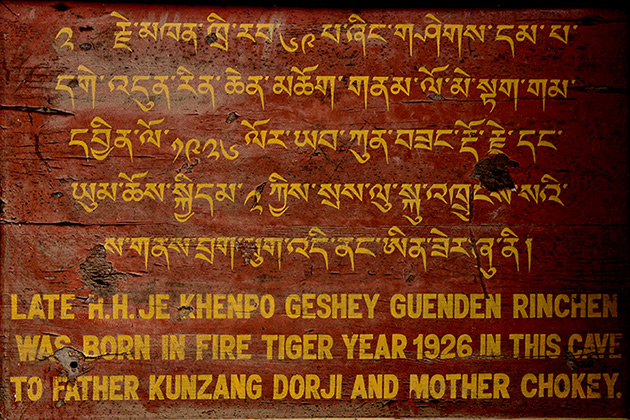 ༢ རྗེ་མཁན་ཁྲི་རབ་༦༩་པ་ཞིང་གཤེགས་དམ་པ་
དགེ་འདུན་རིན་ཆེན་མཆོག་གནམ་ལོ་མེ་སྟག་གམ་
དབྱིན་ལོ་༡༩༢༦་ལོར་ཡབ་ཀུན་བཟང་རྡོ་རྗེ་དང་
ཡུམ་ཆོས་སྐྱིདམ་ ཀྱིས་སྲས་ལུ་སྐུ་འཁྲུངས་སའི་
ས་གནས་བྲག་ཕུག་འདི་ནང་ཨིན་ཟེར་ཞུ་ནི།
LATE H.H.JE KHENPO GESHEY GUENDEN RINCHEN
WAS BORN IN FIRE TIGER YEAR 1926 IN THIS CAVE
TO FATHER KUNZANG DORJI AND MOTHER CHOKEY.